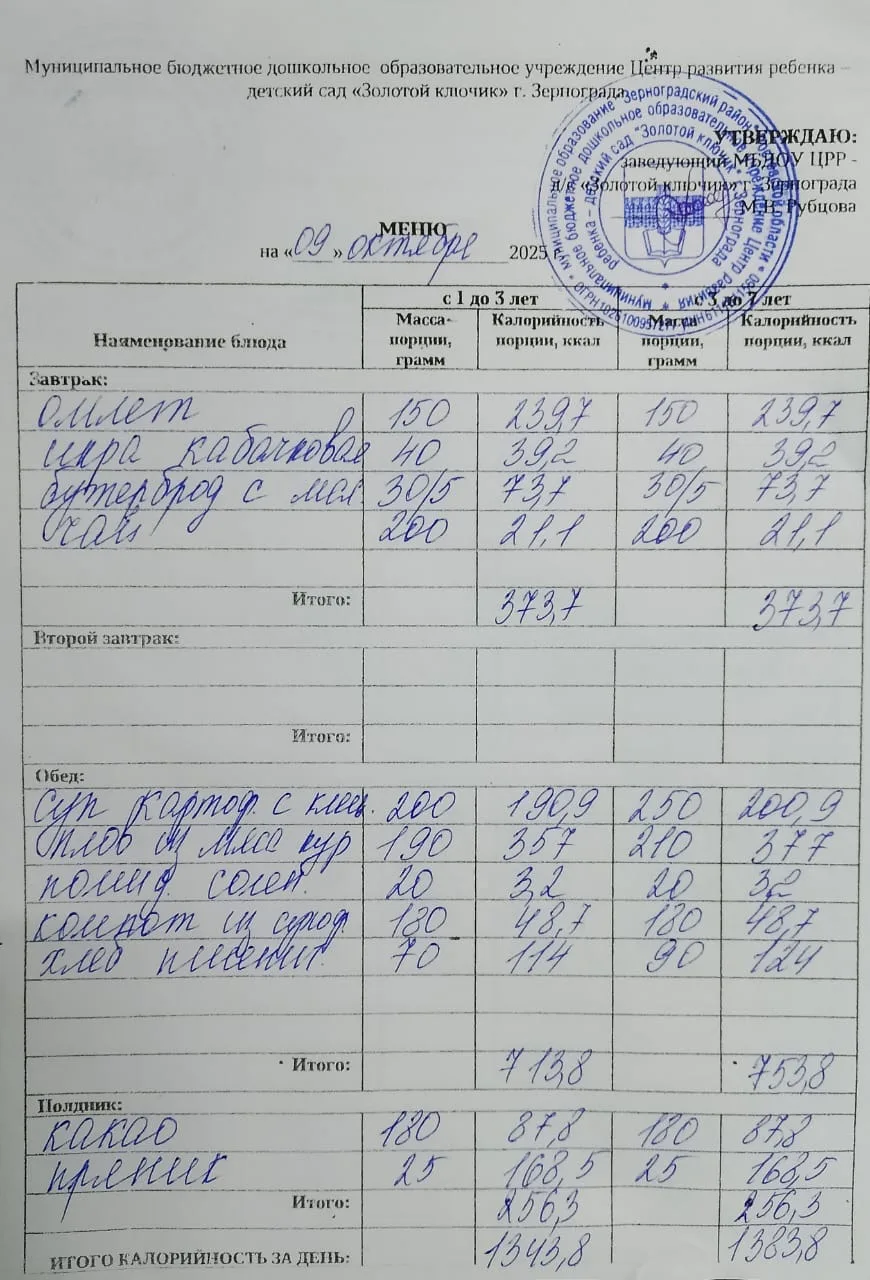 Муниципальное бюджетное дошкольное образовательное учреждение Центр развития ребенка –
детский сад «Золотой ключик» г. Зернограда
УТВЕРЖДАЮ:
заведующий МБДОУ ЦРР -
д/с «Золотой ключик» г. Зернограда
М.В. Рубцова
МЕНЮ
на «09» октября 2025 г.
Наименование блюда с 1 до 3 лет с 3 до 7 лет
Масса порции, грамм Калорийность порции, ккал Масса порции, грамм Калорийность порции, ккал
Завтрак:
омлет 150 239,7 150 239,7
икра кабачковая 40 39,2 40 39,2
бутерброд с мал 30/5 73,7 30/5 73,7
чай 200 21,1 200 21,1
Итого: 373,7 373,7
Второй завтрак:
Итого:
Обед:
суп картоф. с клец. 200 190,9 250 200,9
плов из мяса кур 190 357 210 377
помид. солен. 20 3,2 20 3,2
компот из сухоф. 180 48,7 180 48,7
хлеб пшенич. 70 114 90 124
Итого: 713,8 753,8
Полдник:
какао 180 87,8 180 87,8
пряник 25 168,5 25 168,5
Итого: 256,3 256,3
ИТОГО КАЛОРИЙНОСТЬ ЗА ДЕНЬ: 1343,8 1383,8